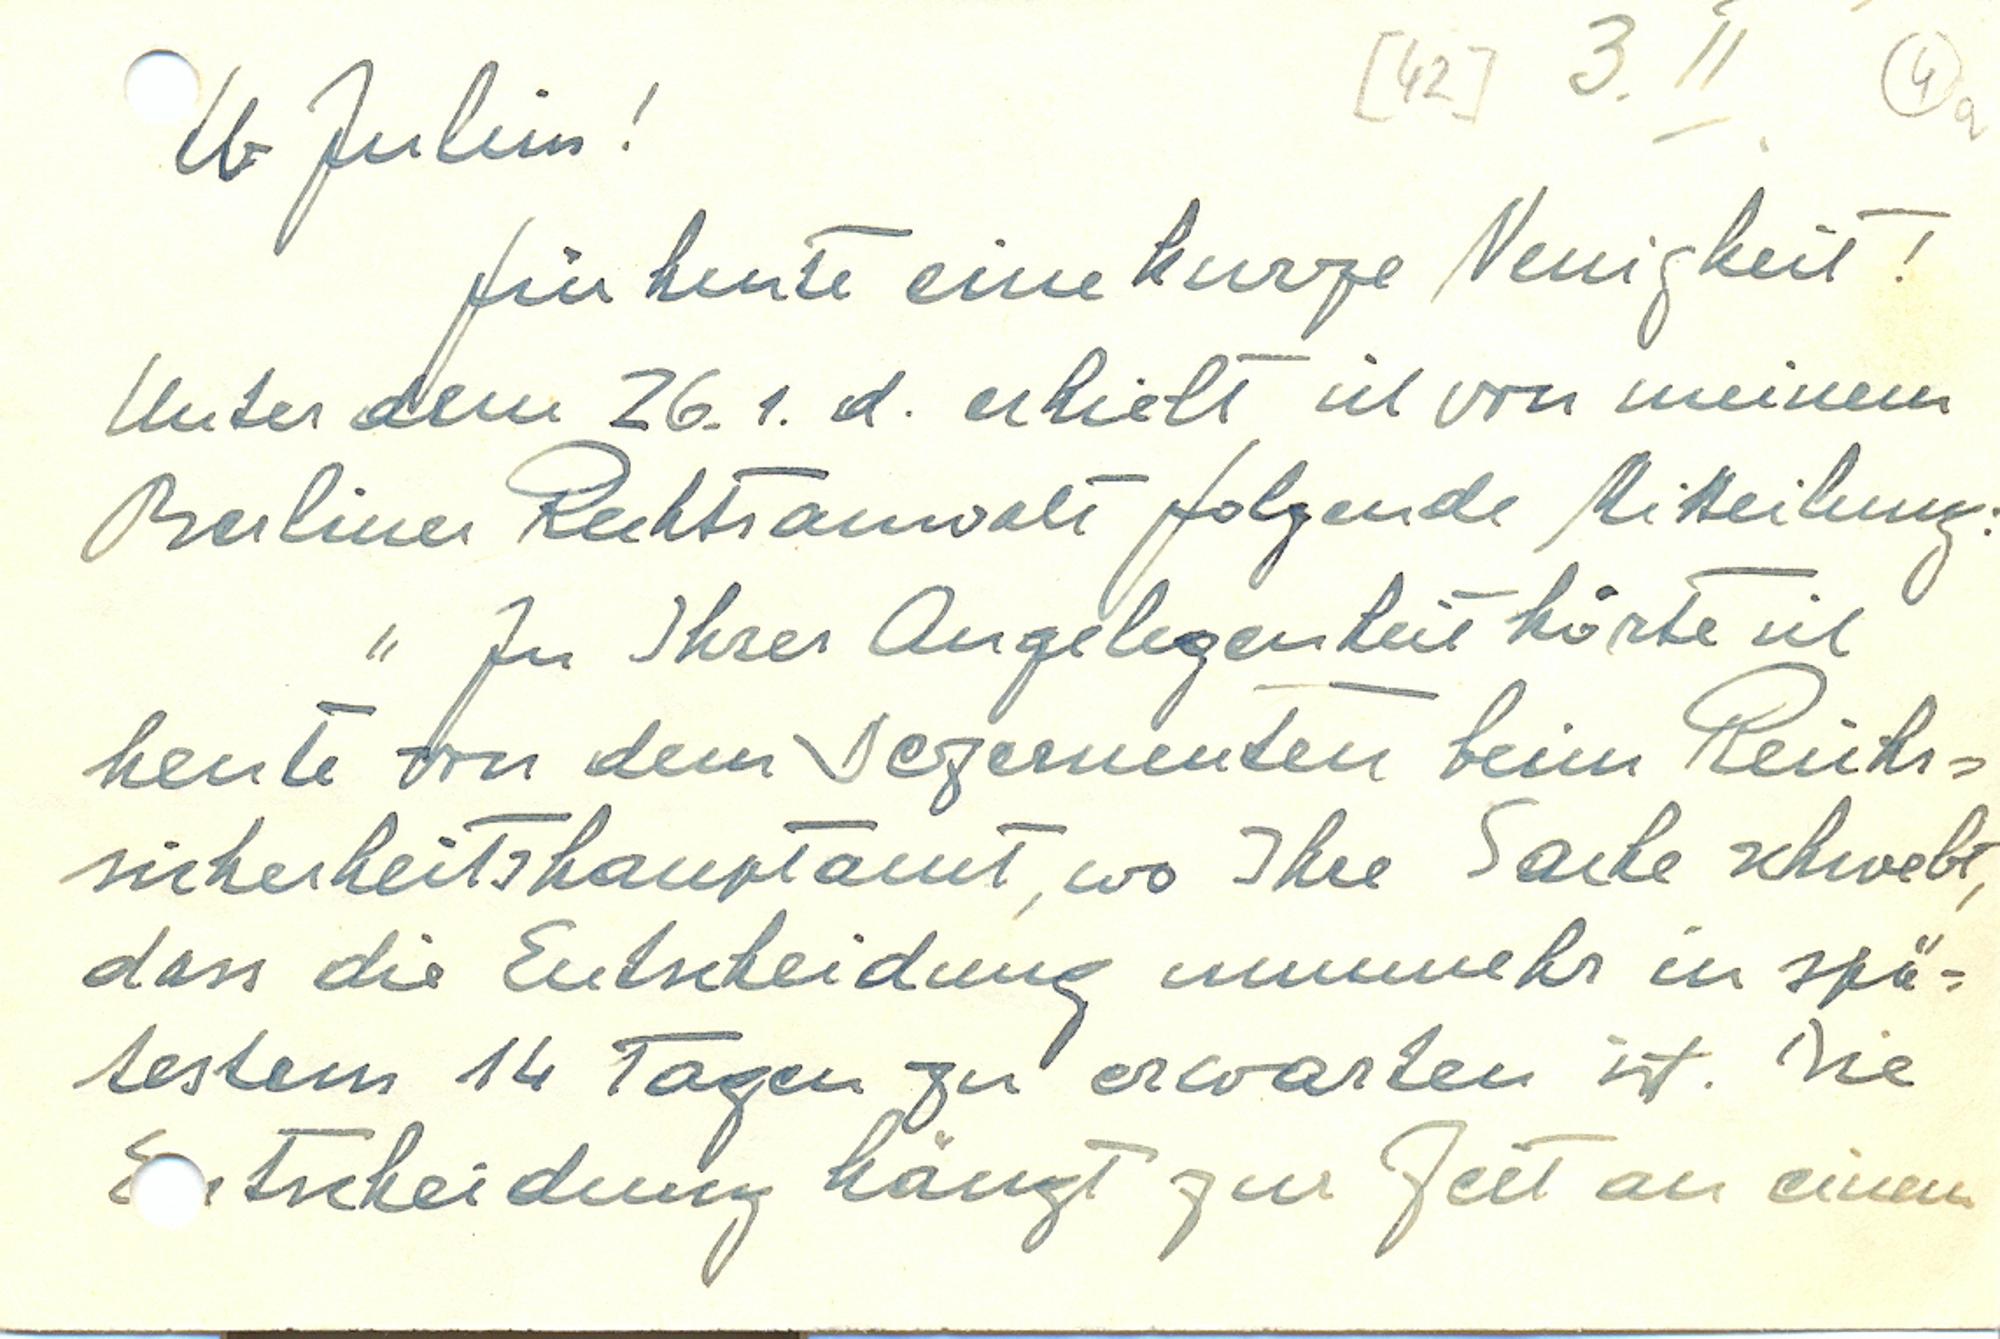 [42] 3. II. 4a
Lb Julius!
für heute eine kurze Neuigkeit!
Unter dem 26. 1. d. erhielt ich von meinem
Berliner Rechtsanwalt folgende Mitteilung:
" In Ihrer Angelegenheit hörte ich
heute von dem Dezernenten beim Reichs=
sicherheitshauptamt, wo Ihre Sache schwebt,
dass die Entscheidung nunmehr in spä=
testens 14 Tagen zu erwarten ist. Die
Entscheidung hängt zur Zeit an einem